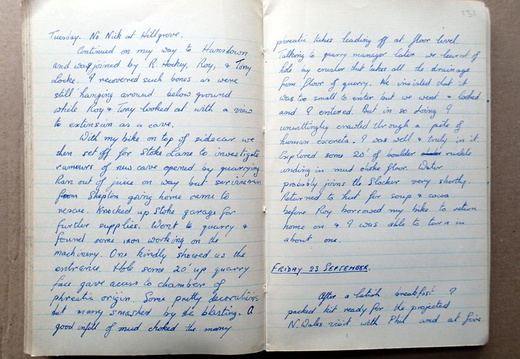 Tuesday. No Nick at Hillgrove.
Continued on my way to Hunsdown
and was joined by R. Hockey, Roy, & Tony
Locke. I recovered such bones as were
still hanging around below ground
while Roy & Tony looked at with a view
to extension as a cave.
With my bike on top of sidecar we
then set off for Stoke Lane to investigate
rumours of new cave opened by quarrying
Ran out of juice on way but serviceman
from Shepton going home came to
rescue. Knocked up Stoke garage for
further supplies. Went to quarry &
found some men working on the
machinery. One kindly showed us the
entrance. Hole some 20' up quarry
face gave access to chamber of
phreatic origin. Some pretty decorations
but many smashed by the blasting. A
good infill of mud choked the many
131
phreatic tubes leading off at floor level
Talking to quarry manager later we learned of
hole by crusher that takes all the drainage
from floor of quarry. He insisted that it
was too small to enter but we went & looked
and I entered. But in so doing I
unwittingly crawled through a pile of
human excreta. I was well & truly in it.
Explored some 20' of boulder ruckle
ending in mud choke floor. Water
probably joins the Stocker very shortly.
Returned to hut for soup & cocoa
before Roy borrowed my bike to return
home on & I was able to turn in
about one.
FRIDAY 23 SEPTEMBER.
After a latish breakfast I
packed kit ready for the projected
N. Wales visit with Phil and at five